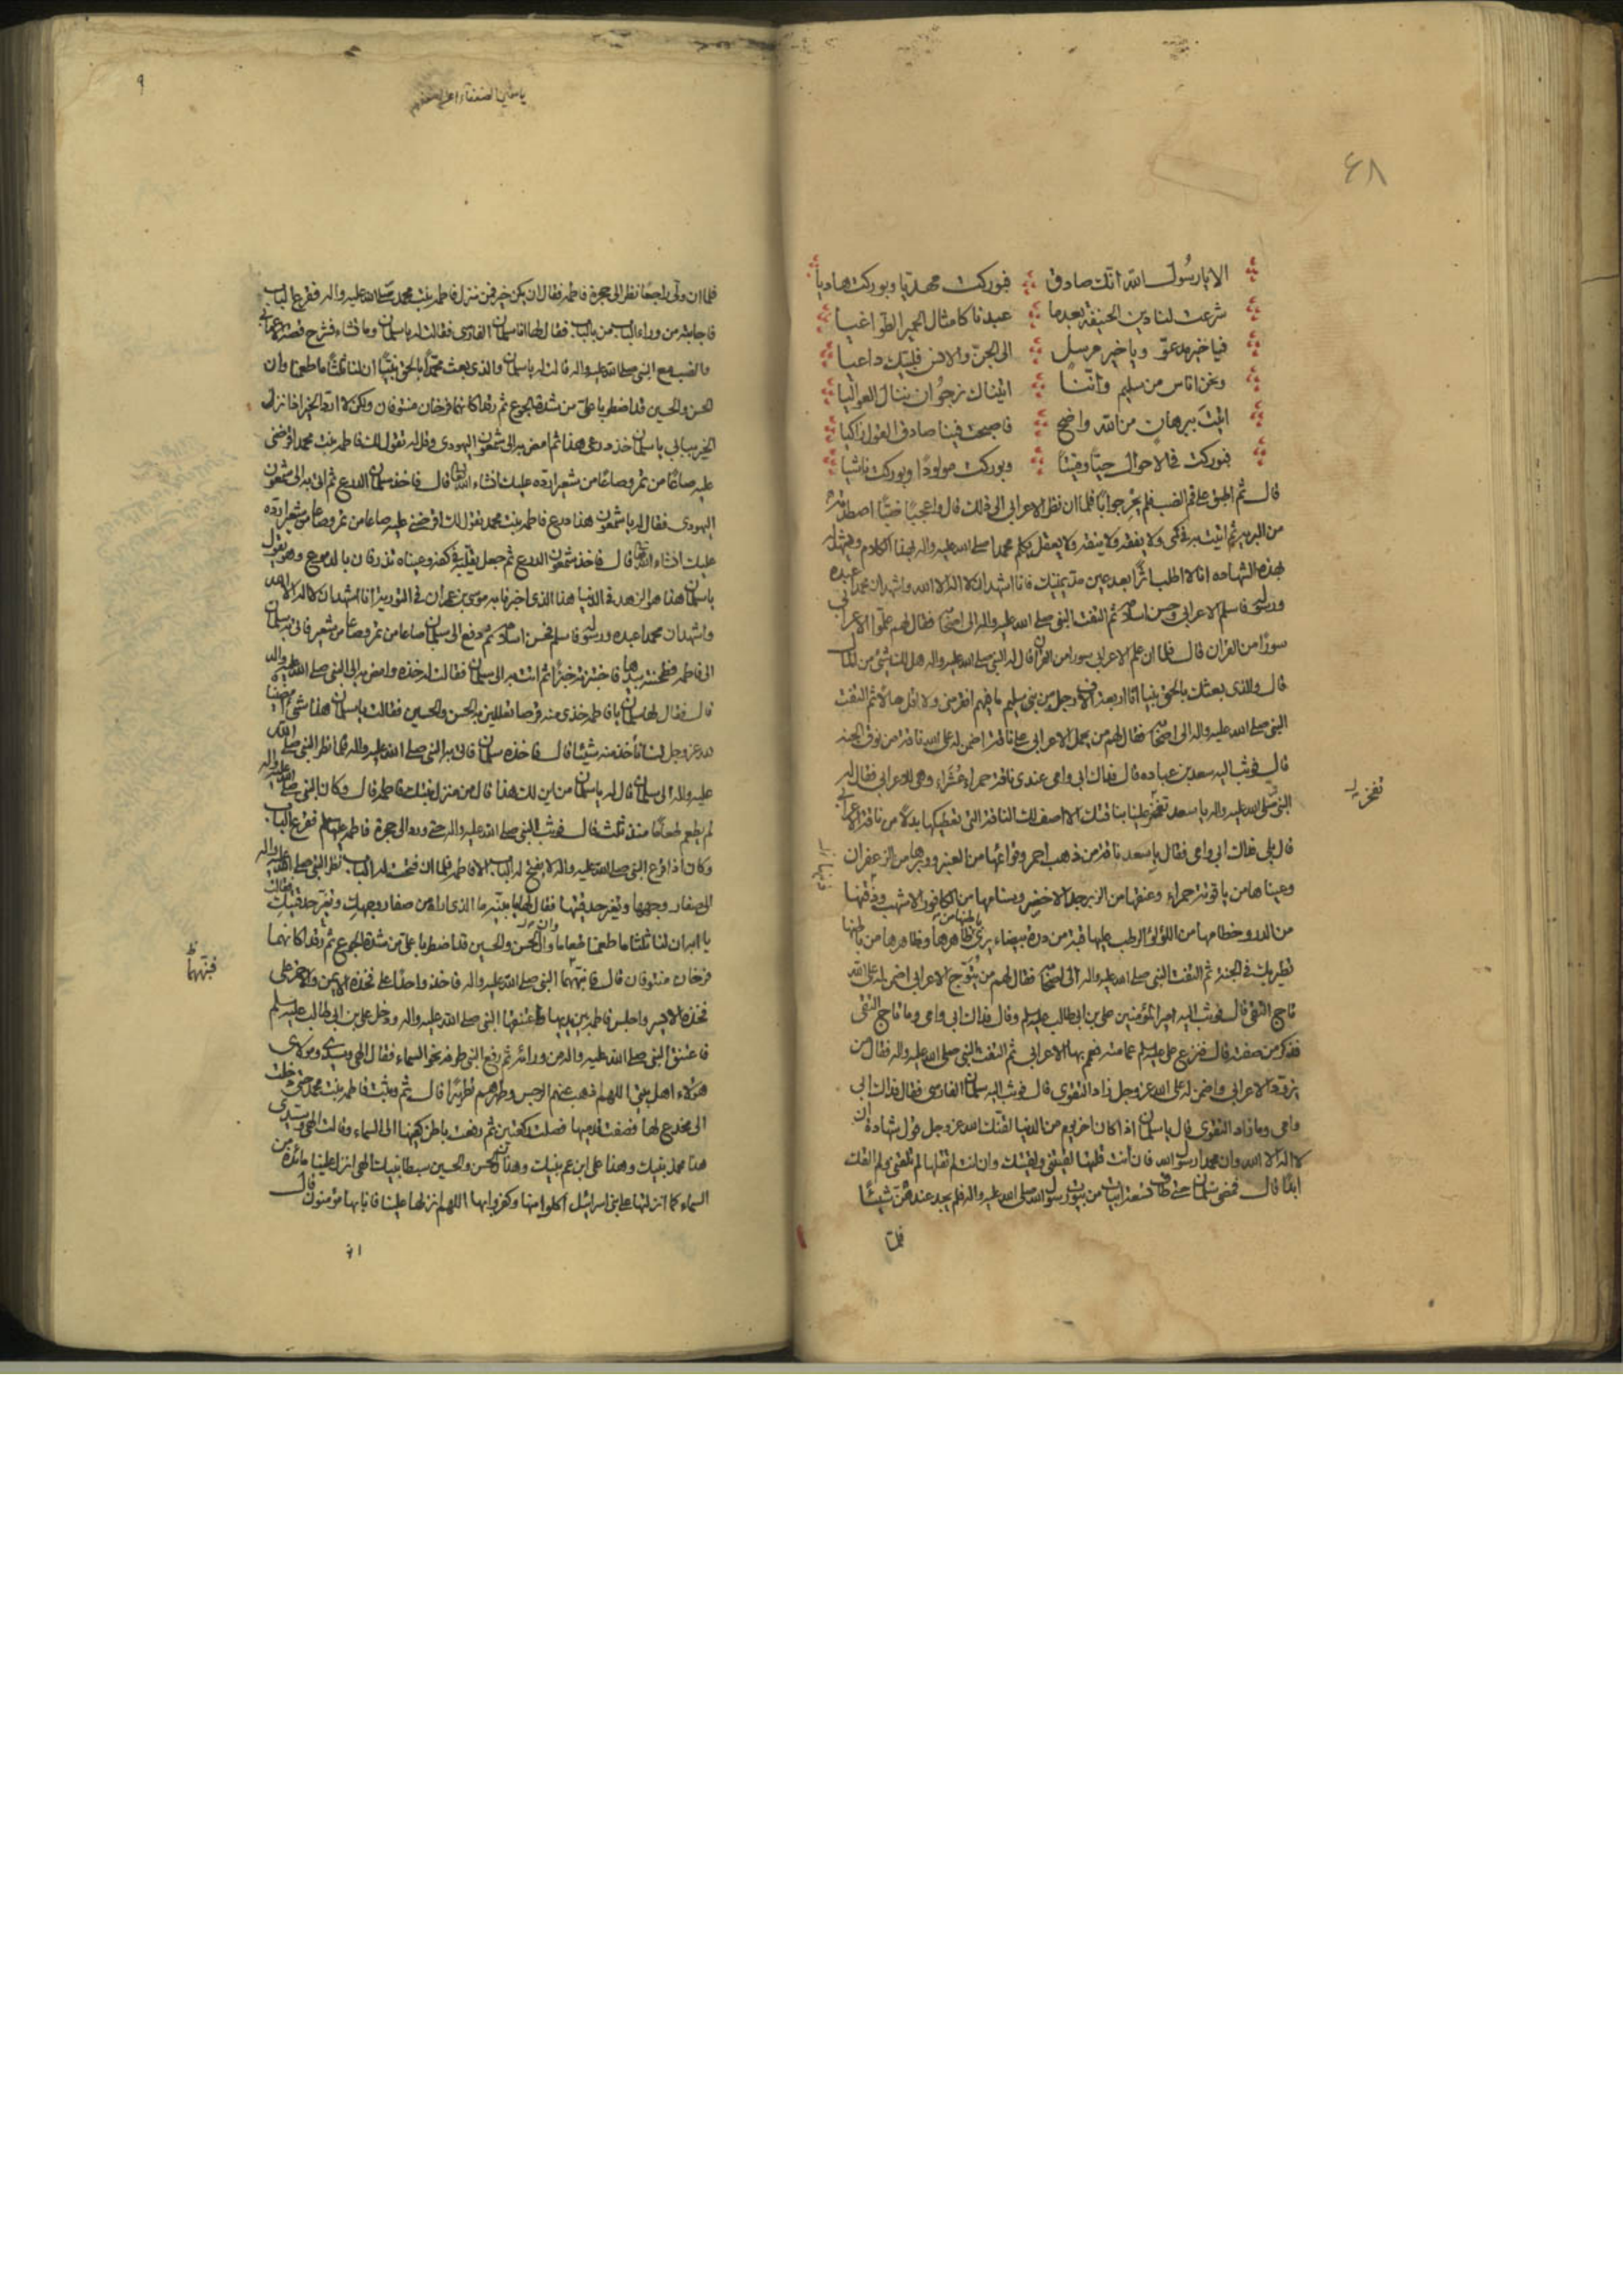 ٤٨
الا يا رسول الله انك صادق فبوركت مهديا وبوركت هاديا
شرعت لنا دين الحنيفة بعدما عبدنا كامثال الحمير الطواغيا
فيا خير مدعو ويا خير مرسل الى الجن والانس لبيك داعيا
ونحن اناس من سليم واننا اتيناك نرجو ان ننال العواليا
اتيت ببرهان من الله واضح فاصبحت فينا صادق القول زاكيا
فبوركت في الاحوال حيا وميتا وبوركت مولودا وبوركت ناشيا
قال ثم اطبق على فم الضب فلم يحر جوابا فلما ان نظر الاعرابي الى ذلك قال واعجبا ضبا اصطدته
من البرية ثم اتيت به في كمي ولا يفقه ولا ينقه ولا يعقل يكلم محمدا صلى الله عليه واله بهذا الكلام ويشهد له
بهذه الشهادة انا لا اطلب اثرا بعد عين مد يمينك فانا اشهد ان لا اله الا الله واشهد ان محمدا عبده
ورسوله فاسلم الاعرابي وحسن اسلامه ثم التفت النبي صلى الله عليه واله الى اصحابه فقال لهم علموا الاعرابي
سورا من القران قال فلما ان علم الاعرابي سورا من القران قال له النبي صلى الله عليه واله هل لك شيء من المال
قال والذي بعثك بالحق نبيا انا اربعة الاف رجل من بني سليم ما فيهم افقر مني ولا اقل مالا ثم التفت
النبي صلى الله عليه واله الى اصحابه فقال لهم من يحمل الاعرابي على ناقة اضمن له على الله ناقة من نوق الجنة
قال فوثب اليه سعد بن عباده قال فداك ابي وامي عندي ناقة حمراء عشراء وهي للاعرابي فقال له
النبي صلى الله عليه واله يا سعد تفخر علينا بناقتك الا اصف لك الناقة التي نعطيكها بدلا من ناقة الاعرابي
تفخر
قال بلى فداك ابي وامي فقال يا سعد ناقة من ذهب احمر وقوائمها من العنبر ووبرها من الزعفران
وعيناها من ياقوتة حمراء وعنقها من الزبرجد الاخضر وسنامها من الكافور الاشهب وذقنها
من الدر وخطامها من اللؤلؤ الرطب عليها قبة من درة بيضاء يرى ظاهرها من باطنها وظاهرها من باطنها
تطير بك في الجنة ثم التفت النبي صلى الله عليه واله الى اصحابه فقال لهم من يتوج الاعرابي اضمن له على الله
تاج التقى قال فوثب اليه امير المؤمنين علي بن ابي طالب عليه السلم وقال فداك ابي وامي وما تاج التقى
فذكر من صفته قال فنزع علي عليه السلم عمامته فعمم بها الاعرابي ثم التفت النبي صلى الله عليه واله فقال من
يزود الاعرابي واضمن له على الله عز وجل زاد التقوى قال فوثب اليه سلمان الفارسي فقال فداك ابي
وامي وما زاد التقوى قال يا سلمان اذا كان اخر يوم من الدنيا لقنك الله عز وجل قول شهادة ان
لا اله الا الله وان محمدا رسول الله فان انت قلتها لقيتني ولقيتك وان انت لم تقلها لم تلقني ولم القك
ابدا قال فمضى سلمان حتى طاف تسعة ابيات من بيوت رسول الله صلى الله عليه واله فلم يجد عندهن شيئا
فلما
٩
فلما ان ولى راجعا نظر الى حجرة فاطمه فقال ان يكن خير فمن منزل فاطمه بنت محمد صلى الله عليه واله فقرع الباب
فاجابته من وراء الباب من بالباب فقال لها انا سلمان الفارسي فقالت له يا سلمان وما تشاء فشرح قصة الاعرابي
والضب مع النبي صلى الله عليه واله قالت له يا سلمان والذي بعث محمدا بالحق نبيا ان لنا ثلثا ما طعمنا وان
الحسن والحسين قد اضطربا علي من شدة الجوع ثم رقدا كانهما فرخان منتوفان ولكن لا ارد الخير اذا نزل
الخير ببابي يا سلمان خذ درعي هذا ثم امض به الى شمعون اليهودي وقل له تقول لك فاطمه بنت محمد اقرضني
عليه صاعا من تمر وصاعا من شعير ارده عليك ان شاء الله تعالى قال فاخذ سلمان الدرع ثم اتى به الى شمعون
اليهودي فقال له يا شمعون هذا درع فاطمه بنت محمد تقول لك اقرضني عليه صاعا من تمر وصاعا من شعير ارده
عليك ان شاء الله قال فاخذ شمعون الدرع ثم جعل يقلبه في كفه وعيناه تذرفان بالدموع وهو يقول
يا سلمان هذا هو الزهد في الدنيا هذا الذي اخبرنا به موسى بن عمران في التورية انا اشهد ان لا اله الا الله
واشهد ان محمدا عبده ورسوله فاسلم فحسن اسلامه ثم دفع الى سلمان صاعا من تمر وصاعا من شعير فاتى به سلمان
الى فاطمه فطحنته بيدها فاختبزته خبزا ثم اتت به الى سلمان فقالت له خذه وامض به الى النبي صلى الله عليه واله
قال فقال لها سلمان يا فاطمه خذي منه قرصا تعللين به الحسن والحسين فقالت يا سلمان هذا شيء امضيناه
لله عز وجل لسنا ناخذ منه شيئا قال فاخذه سلمان فاتى به النبي صلى الله عليه واله فلما نظر النبي صلى الله
عليه واله الى سلمان قال له يا سلمان من اين لك هذا قال من منزل بنتك فاطمه قال وكان النبي صلى الله عليه واله
لم يطعم طعاما منذ ثلث قال فوثب النبي صلى الله عليه واله حتى ورد الى حجرة فاطمه عليها السلم فقرع الباب
وكان اذا قرع النبي صلى الله عليه واله لا يفتح له الباب الا فاطمه فلما ان فتحت له الباب نظر النبي صلى الله عليه واله
الى صفار وجهها وتغير حدقتيها فقال لها يا بنية ما الذي اراه من صفار وجهك وتغير حدقتيك فقالت
يا ابه ان لنا ثلثا ما طعمنا طعاما وان الحسن والحسين قد اضطربا علي من شدة الجوع ثم رقدا كانهما
فرخان منتوفان قال فانبههما النبي صلى الله عليه واله فاخذ واحدا على فخذه الايمن والاخر على
فنبههما
فخذه الايسر واجلس فاطمه بين يديها واعتنقها النبي صلى الله عليه واله ودخل علي بن ابي طالب عليه السلم
فاعتنق النبي صلى الله عليه واله من ورائه ثم رفع النبي طرفه نحو السماء فقال الهي وسيدي ومولاي
هؤلاء اهل بيتي اللهم اذهب عنهم الرجس وطهرهم تطهيرا قال ثم وثبت فاطمه بنت محمد حتى دخلت
الى مخدع لها فصفت قدميها فصلت ركعتين ثم رفعت باطن كفيها الى السماء وقالت الهي وسيدي
هذا محمد نبيك وهذا علي ابن عم نبيك وهذان الحسن والحسين سبطا نبيك الهي انزل علينا مائدة من
السماء كما انزلتها على بني اسرائيل اكلوا منها وكفروا بها اللهم انزلها علينا فانا بها مؤمنون قال